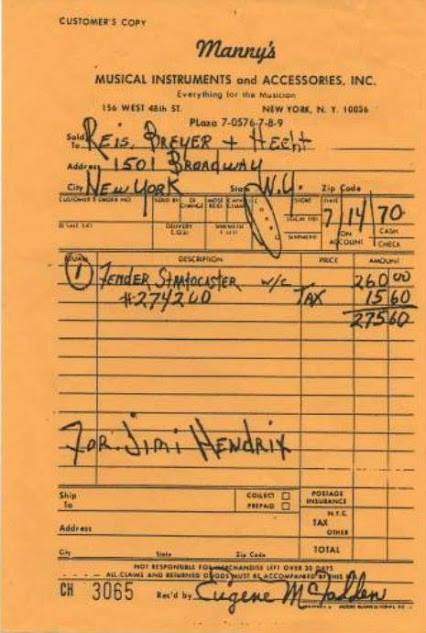 CUSTOMER'S COPY
Manny's
MUSICAL INSTRUMENTS and ACCESSORIES, INC.
Everything for the Musician
156 WEST 48th ST. NEW YORK, N. Y. 10036
PLaza 7-0576-7-8-9
Sold To REIS, BREYER + HECHT
Address 1501 BROADWAY
City NEW YORK State N.Y. Zip Code
CUSTOMER'S ORDER NO. SOLD BY DATE 7/14/70
ON ACCOUNT CASH CHECK
QUAN. DESCRIPTION PRICE AMOUNT
1 FENDER STRATOCASTER w/c 260 00
#274200 TAX 15 60
275 60
FOR: JIMI HENDRIX
Ship To COLLECT PREPAID POSTAGE INSURANCE
N.Y.C.
Address TAX OTHER
City State Zip Code TOTAL
NOT RESPONSIBLE FOR MERCHANDISE LEFT OVER 30 DAYS
ALL CLAIMS AND RETURNED GOODS MUST BE ACCOMPANIED BY THIS
CH 3065 Rec'd by Eugene McFadden